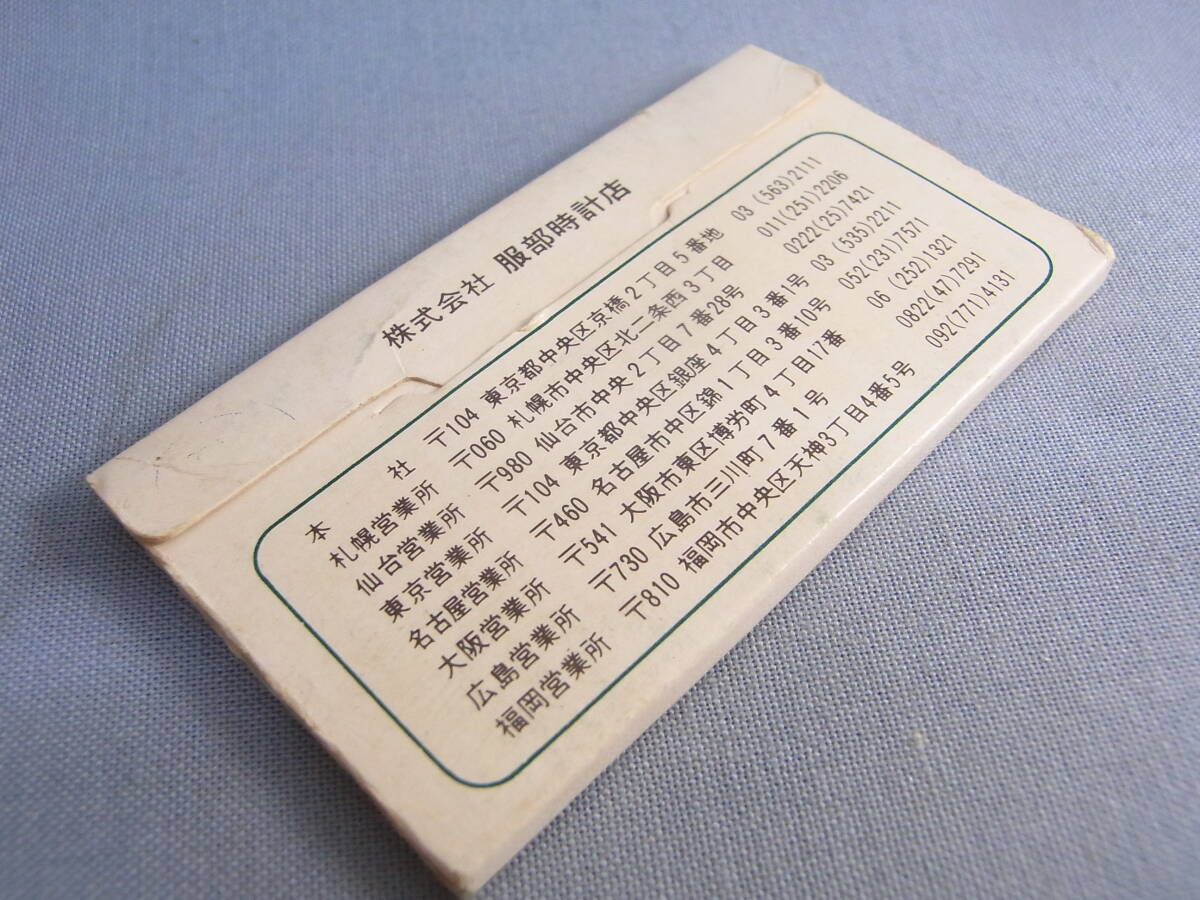 株式会社 服部時計店
本社 〒104 東京都中央区京橋2丁目5番地 03 (563)2111
札幌営業所 〒060 札幌市中央区北二条西3丁目 011(251)2206
仙台営業所 〒980 仙台市中央2丁目7番28号 0222(25)7421
東京営業所 〒104 東京都中央区銀座4丁目3番1号 03 (535)2211
名古屋営業所 〒460 名古屋市中区錦1丁目3番10号 052(231)7571
大阪営業所 〒541 大阪市東区博労町4丁目17番 06 (252)1321
広島営業所 〒730 広島市三川町7番1号 0822(47)7291
福岡営業所 〒810 福岡市中央区天神3丁目4番5号 092(771)4131